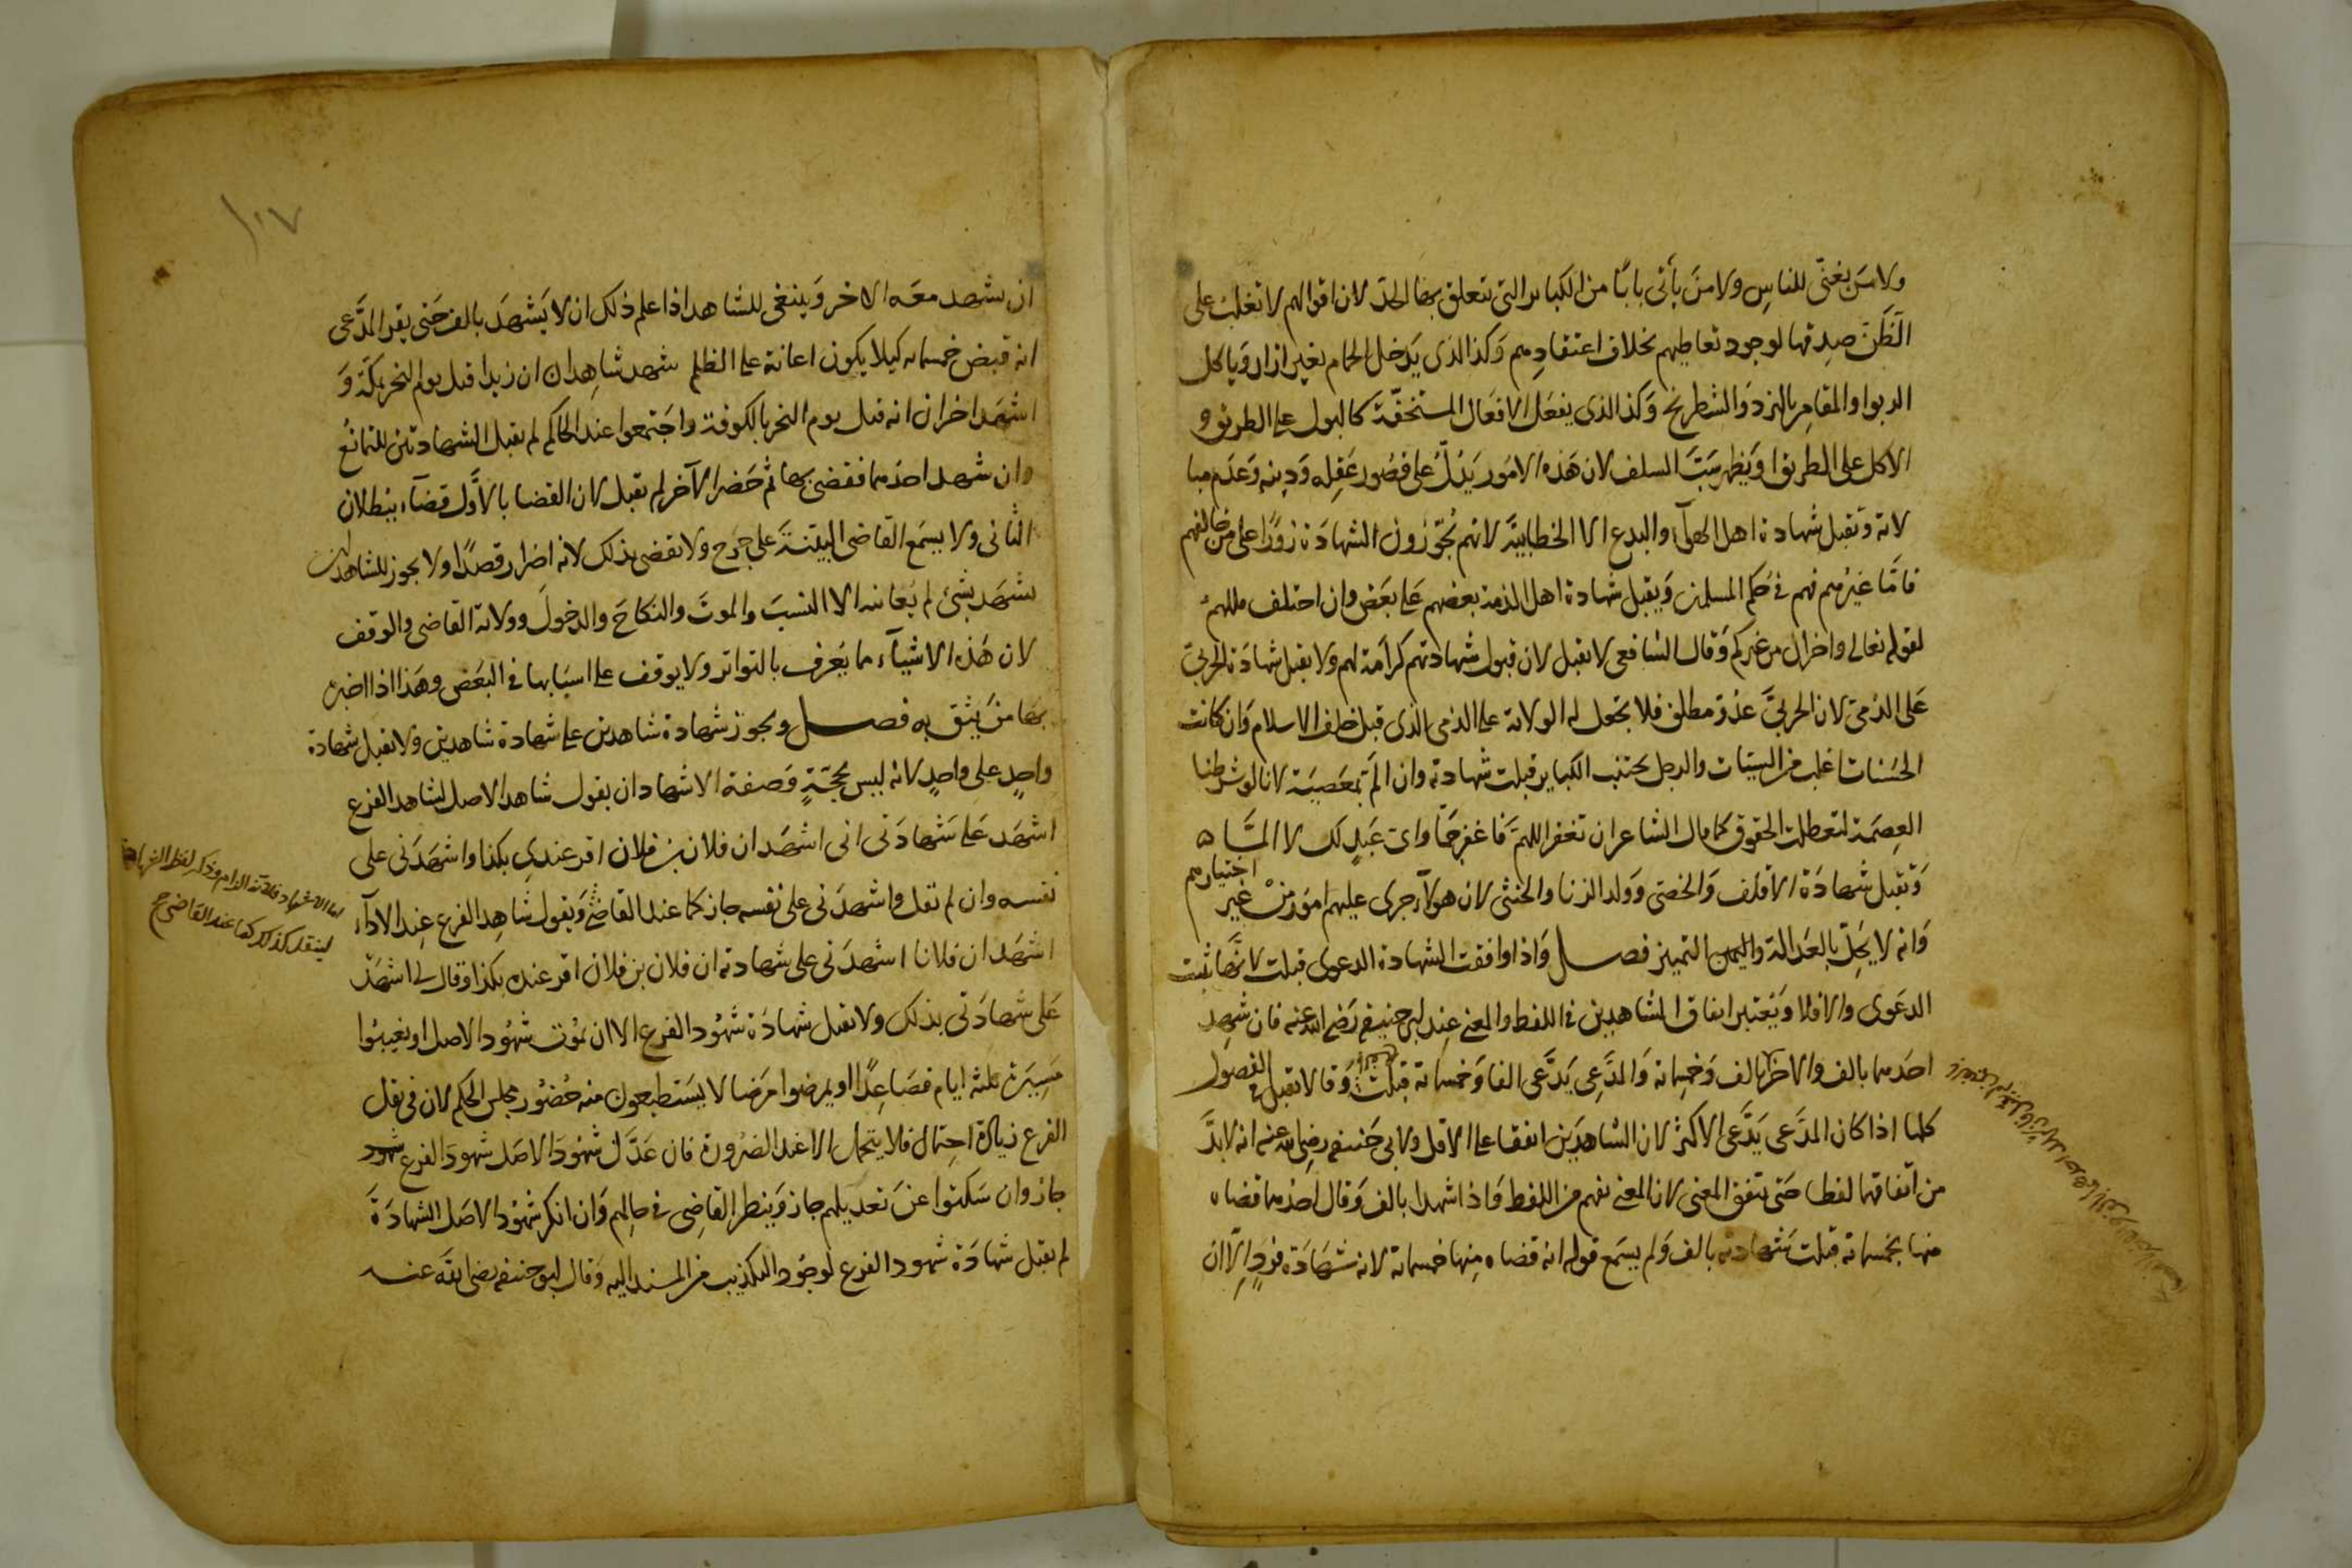 ولا من يغنّي للناس ولا من يأتي بابًا من الكبائر التي تتعلق بها الحد لان اقوالهم لا تغلب على
الظن صدقها لوجود تعاطيهم بخلاف اعتقادهم وكذا الذي يدخل الحمام بغير ازار وياكل
الربوا والمقامر بالنرد والشطرنج وكذا الذي يفعل الافعال المستخفّة كالبول على الطريق و
الاكل على الطريق او يظهر سبّ السلف لان هذه الامور يدلّ على قصور عقله ودينه وعدم مبا
لاته وتقبل شهادة اهل الهوآء والبدع الا الخطابيّة لانهم يجوّزون الشهادة زورًا على من خالفهم
فامّا غيرهم فهم في حكم المسلمين ويقبل شهادة اهل الذمة بعضهم على بعض وان اختلف مللهم
لقوله تعالى واخران من غيركم وقال الشافعي لا تقبل لان قبول شهادتهم كرامة لهم ولا يقبل شهادة الحربيّ
على الذميّ لان الحربيّ عدوّ مطلق فلا يجعل له الولاية على الذمي الذي قبل خلف الاسلام وان كانت
الحسنات اغلب من السيئات والرجل يجتنب الكباير قبلت شهادته وان الَمّ بمعصيَة لانا لو شرطنا
العصمة لتعطلت الحقوق كما قال الشاعر ان تغفر اللهمّ فاغفر جمّا واىّ عبد لك لا المّا ه
وتقبل شهادة الاقلف والخصيّ وولد الزنا والخنثى لان هولآء جرى عليهم امور من غير اختيارهم
وانه لا يخلّ بالعدالة واليمين التميز فصل واذا وافقت الشهادة الدعوى قبلت لانها تثبت
الدعوى والا فلا ويعتبر اتفاق الشاهدين في اللفظ والمعنى عند ابي حنيفة رضي الله عنه فان شهد
احدهما بالف والاخر بالف وخمسماية والمدّعي يدّعي الفا وخمسماية قبلت وقالا تقبل في الفصول
كلها اذا كان المدّعي يدّعي الاكثر لان الشاهدين اتفقا على الاقل ولابي حنيفة رضي الله عنه انه لا بدّ
من اتفاقهما لفظا حتى يتفق المعنى لان المعنى يفهم من اللفظ واذا شهدا بالف وقال احدهما قضاه
منها بخمسماية قبلت شهادته بالف ولم يسمع قوله انه قضاه منها خمسماية لانه شهادة فردٍ الّا ان
١٠٧
ان يشهد معه الاخر وينبغي للشاهد اذا علم ذلك ان لا يشهد بالف حتى يقر المدّعي
انه قبض خمسمايه كيلا يكون اعانة على الظلم شهد شاهدان ان زيدا قتل يوم النحر بمكّة و
اشهد اخران انه قتل يوم النحر بالكوفة واجتمعوا عند الحاكم لم يقبل الشهادتين للتمانُع
وان شهد احدهما فقضى بها ثم حضر الآخر لم تقبل لان القضا بالاوّل قضآء ببطلان
الثاني ولا يسمع القاضي البيّنة على جرح ولا يقضى بذلك لانه اضرار قصدًا ولا يجوز للشاهد ان
يشهد بشئ لم يُعاينه الا النسبَ والموتَ والنكاحَ والدخولَ وولاية القاضي والوقف
لان هذه الاشياء ما يُعرف بالتواتر ولا يوقف على اسبابها في البعض وهذا اذا اخبره
بها من يثق به فصل ويجوز شهادة شاهدين على شهادة شاهدين ولا تقبل شهادة
واحدٍ على واحدٍ لانه ليس بحجّةٍ وصفة الاشهاد ان يقول شاهد الاصل لشاهد الفرع
اشهد على شهادتي اني اشهد ان فلان بن فلان اقر عندي بكذا واشهدني على
نفسه وان لم يقل واشهدني على نفسه جاز كما عند القاضي ويقول شاهد الفرع عند الادآء
اشهد ان فلانا اشهدني على شهادته ان فلان بن فلان اقر عنده بكذا وقال لي اشهد
على شهادتي بذلك ولا تقبل شهادة شهود الفرع الا ان يموت شهود الاصل او يغيبوا
مسيرة ثلثة ايام فصاعدًا او يمرضوا مرضا لا يستطيعون منه حضور مجلس الحكم لان في نقل
الفرع زيادة احتمال فلا يتحمل الا عند الضرورة فان عدّل شهود الاصل شهودَ الفرع شهود
جاز وان سكتوا عن تعديلهم جاز وينظر القاضي في حالهم وان انكر شهود الاصل الشهادة
لم يقبل شهادة شهود الفرع لوجود التكذيب من المسند اليه وقال ابو حنيفة رضي الله عنه
لينقل كذلك كما عند القاضي ح